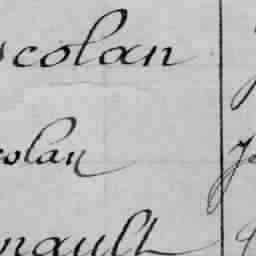 scolan
colan
nault